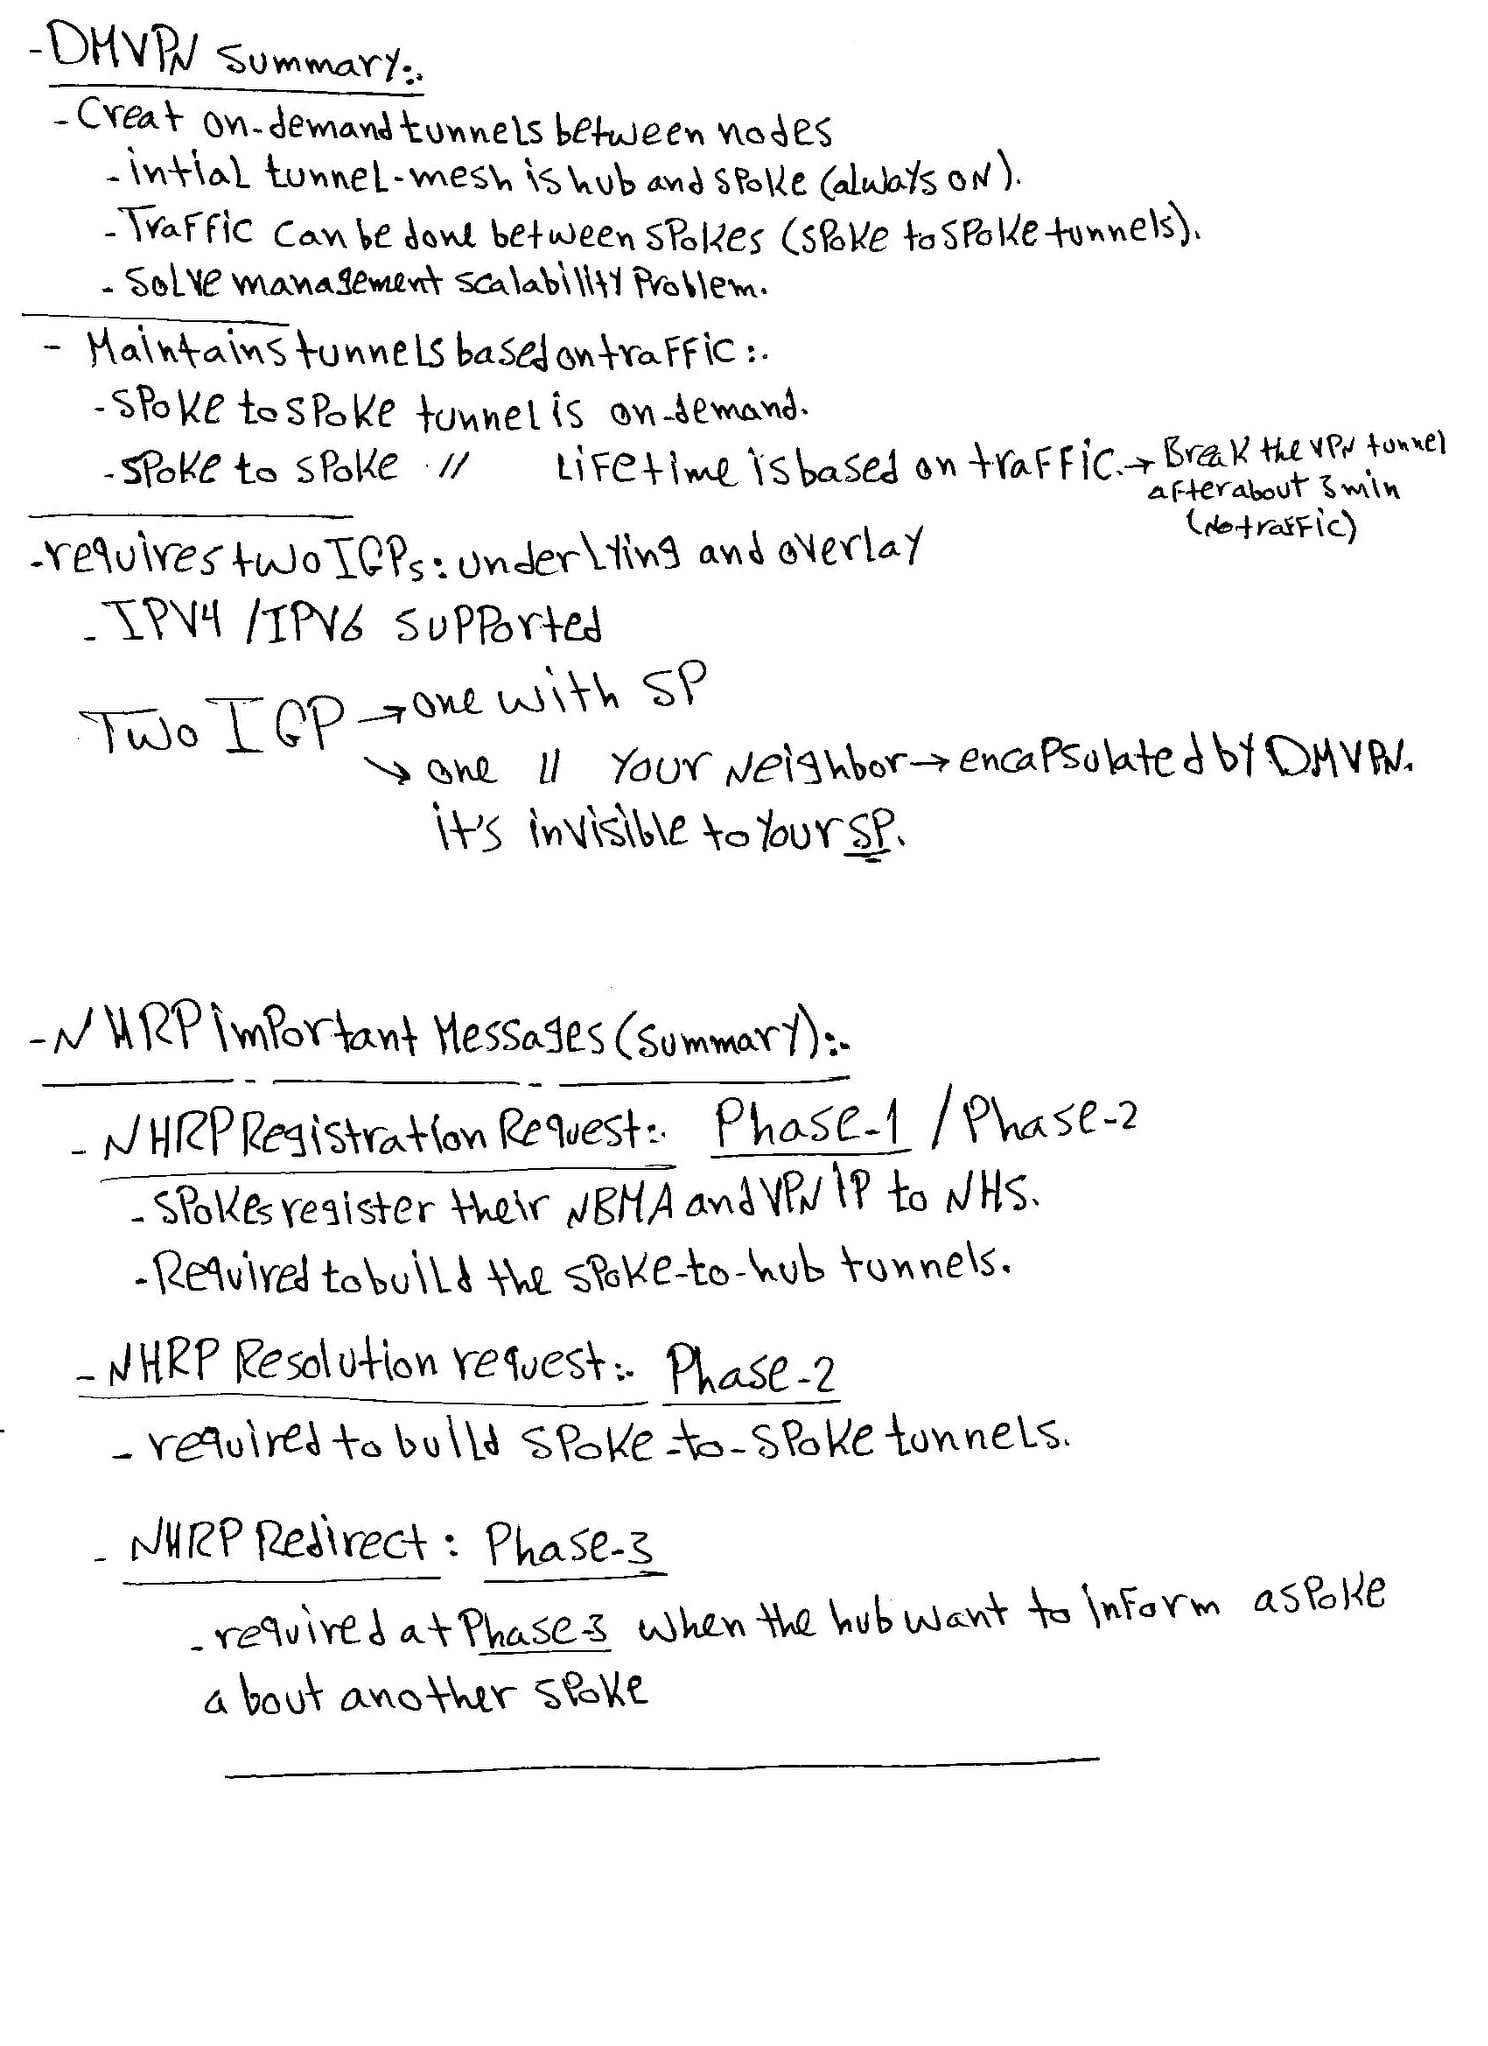 - DMVPN Summary:.
- Creat on-demand tunnels between nodes
- intial tunnel-mesh is hub and spoke (always ON).
- Traffic can be done between spokes (spoke to spoke tunnels).
- Solve management scalability Problem.
- Maintains tunnels based on traffic:.
- Spoke to spoke tunnel is on-demand.
- Spoke to spoke // Lifetime is based on traffic. → Break the VPN tunnel
after about 3 min
(No traffic)
- requires two IGPs: underlying and overlay
- IPV4 / IPV6 supported
Two IGP → one with SP
↘ one // Your Neighbor → encapsulated by DMVPN.
it's invisible to Your SP.
- NHRP important Messages (Summary):-
- NHRP Registration Request:. Phase-1 / Phase-2
- Spokes register their NBMA and VPN IP to NHS.
- Required to build the spoke-to-hub tunnels.
- NHRP Resolution request:. Phase-2
- required to build spoke-to-spoke tunnels.
- NHRP Redirect: Phase-3
- required at Phase-3 when the hub want to inform a spoke
about another spoke